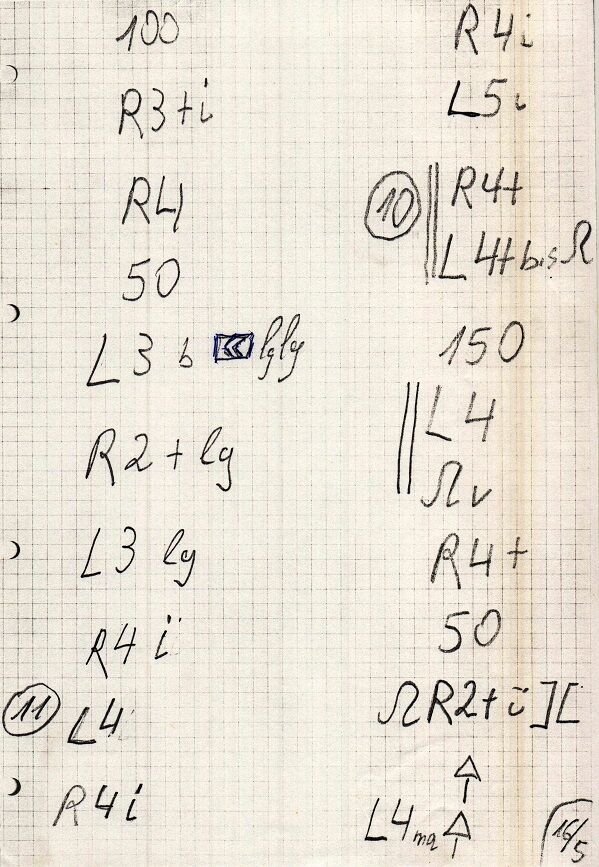 100
R3+i
R4
50
L3 b « lglg
R2+lg
L3 lg
R4i
11 L4
R4i
R4i
L5i
10 R4+
L4+bisΩ
150
L4
Ωv
R4+
50
ΩR2+ii][
L4ma
16/5